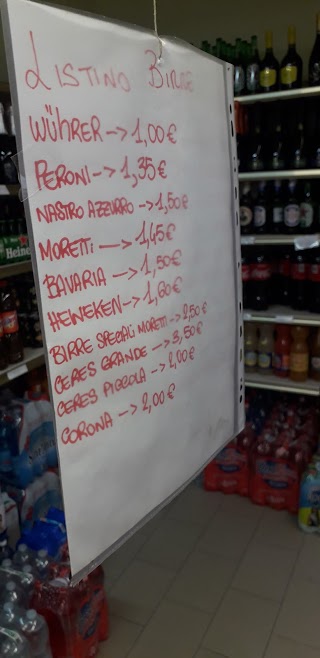 LISTINO BIRRE
WÜHRER -> 1,00 €
PERONI -> 1,35 €
NASTRO AZZURRO -> 1,50 €
MORETTI -> 1,45 €
BAVARIA -> 1,50 €
HEINEKEN -> 1,60 €
BIRRE SPECIALI MORETTI -> 2,50 €
CERES GRANDE -> 3,50 €
CERES PICCOLA -> 2,00 €
CORONA -> 2,00 €
Heine